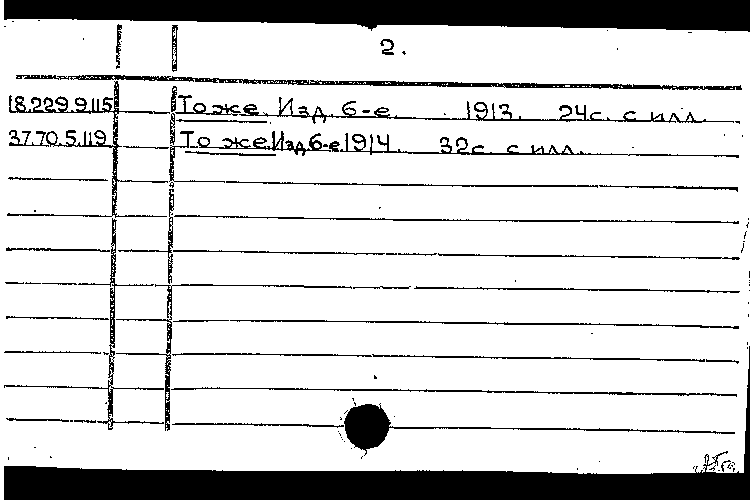 2.
18.229.9.115 То же. Изд. 6-е. 1913. 24с. с илл.
37.70.5.119 То же. Изд. 6-е. 1914. 32с. с илл.